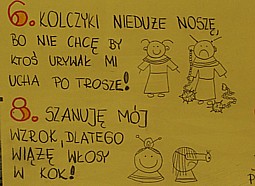 6. KOLCZYKI NIEDUŻE NOSZĘ,
BO NIE CHCĘ BY
KTOŚ URYWAŁ MI
UCHA PO TROSZE!
8. SZANUJĘ MÓJ
WZROK, DLATEGO
WIĄŻĘ WŁOSY
W KOK!
P